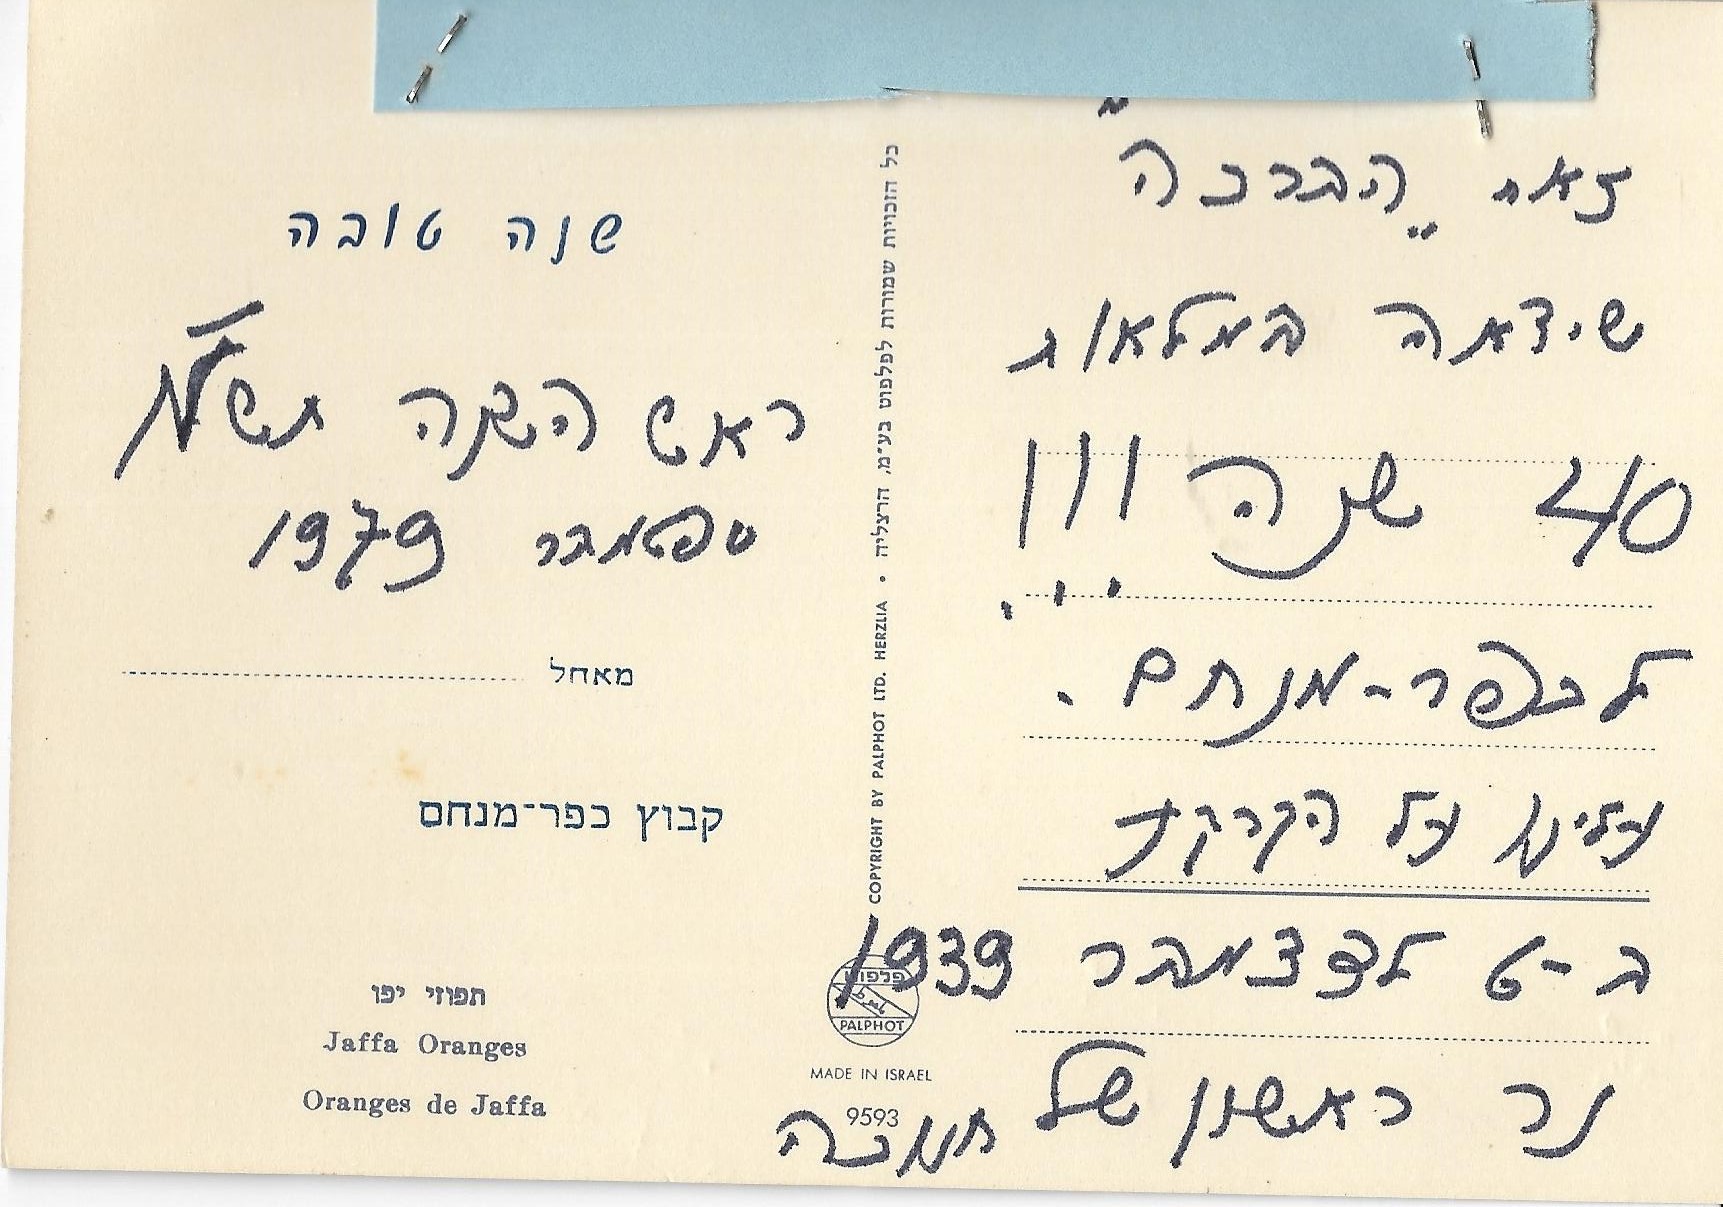 זאת "הברכה"
שיצאה במלאות
40 שנה !!!
לכפר-מנחם.
עלינו על הקרקע
ב-6 לדצמבר 1939
נר ראשון של חנוכה
כל הזכויות שמורות לפלפוט בע"מ, הרצליה • COPYRIGHT BY PALPHOT LTD. HERZLIA
פלפוט
PALPHOT
MADE IN ISRAEL
9593
שנה טובה
ראש השנה תש"מ
ספטמבר 1979
מאחל
קבוץ כפר-מנחם
תפוזי יפו
Jaffa Oranges
Oranges de Jaffa